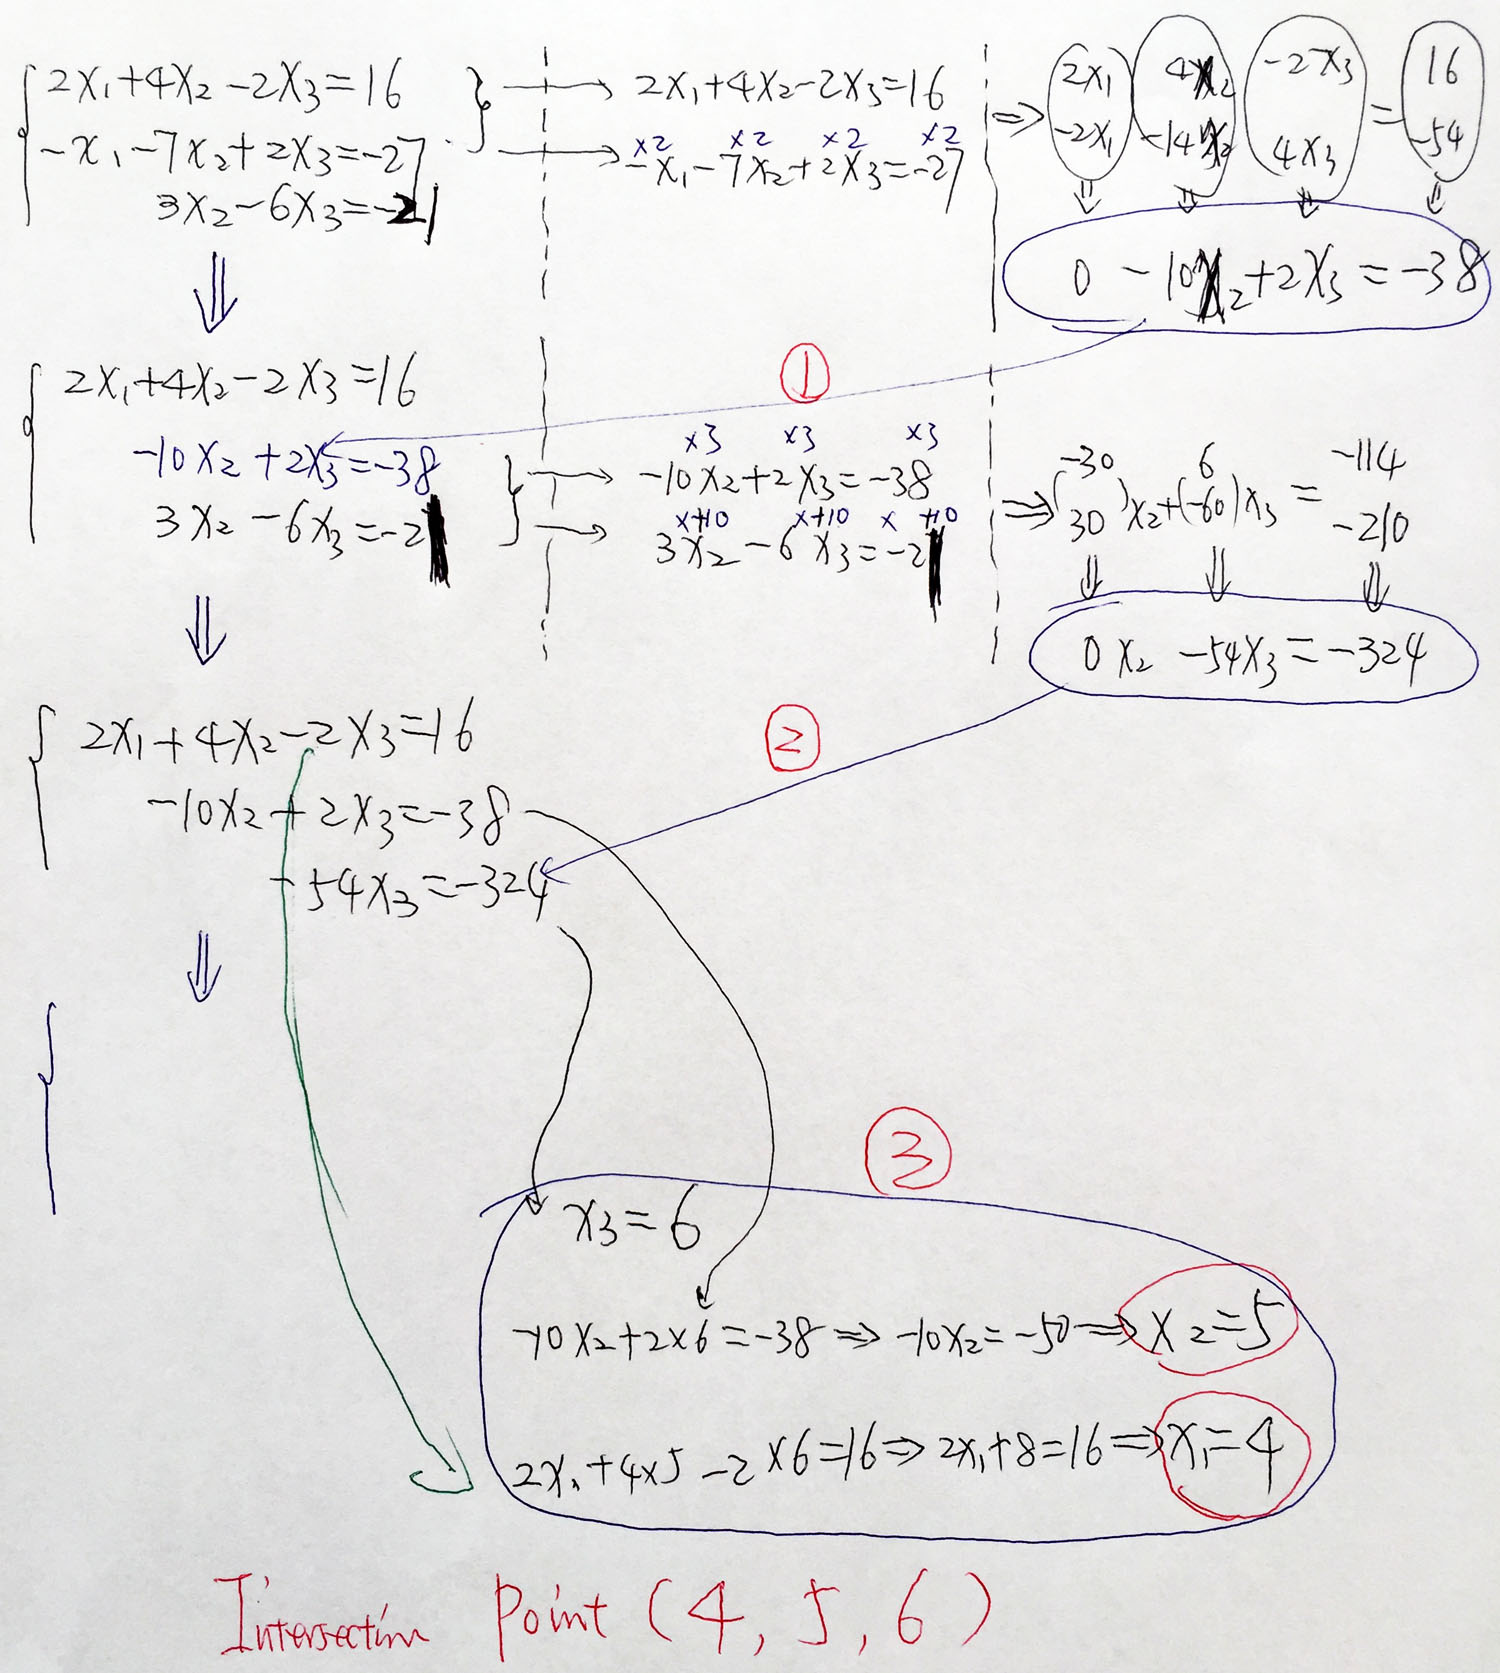 2x₁+4x₂-2x₃=16
-x₁-7x₂+2x₃=-27
3x₂-6x₃=-21
2x₁+4x₂-2x₃=16
x2 x2 x2 x2
-x₁-7x₂+2x₃=-27
⇒ 2x₁ 4x₂ -2x₃ = 16
-2x₁ -14x₂ 4x₃ -54
0 -10x₂+2x₃=-38
①
2x₁+4x₂-2x₃=16
-10x₂+2x₃=-38
3x₂-6x₃=-21
x3 x3 x3
-10x₂+2x₃=-38
x+10 x+10 x +10
3x₂-6x₃=-21
-30 6 -114
⇒ ( 30 )x₂+(-60)x₃ = -210
0x₂ -54x₃=-324
②
2x₁+4x₂-2x₃=16
-10x₂+2x₃=-38
-54x₃=-324
③
x₃=6
-10x₂+2x6=-38⇒-10x₂=-50⇒x₂=5
2x₁+4x5-2x6=16⇒2x₁+8=16⇒x₁=4
Intersection Point (4, 5, 6)